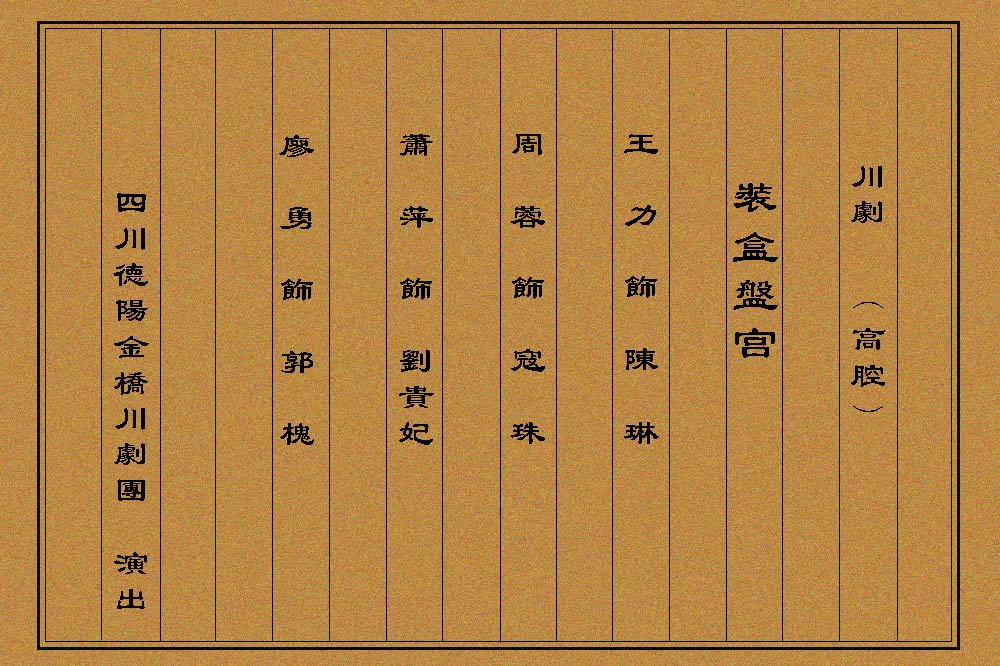 川劇 （高腔）
裝盒盤宫
王力飾陳琳
周蓉飾寇珠
蕭萍飾劉貴妃
廖勇飾郭槐
四川德陽金橋川劇團 演出